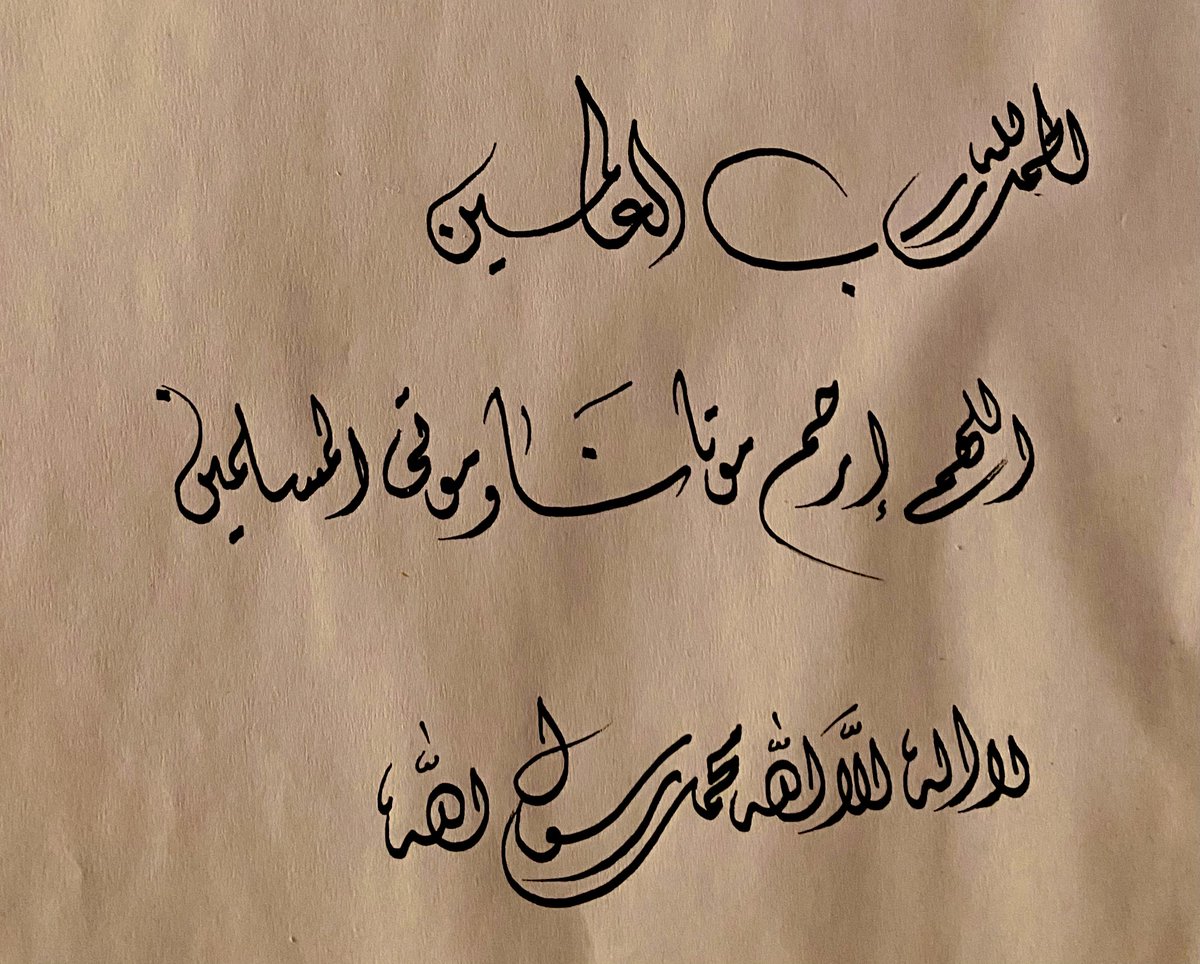 الحمد لله رب العالمين
اللهم إرحم موتانا وموتى المسلمين
لا اله الَّا الله محمد رسول الله